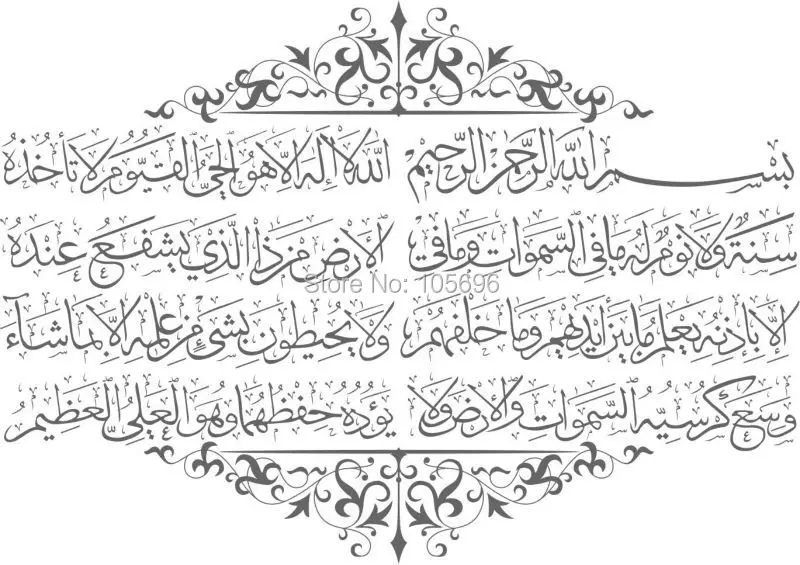 بسم الله الرحمن الرحيم الله لا اله الا هو الحي القيوم لا تأخذه
سنة ولا نوم له ما في السموات وما في الأرض من ذا الذي يشفع عنده
Store No: 105696
إلا بإذنه يعلم ما بين أيديهم وما خلفهم ولا يحيطون بشيء من علمه إلا بما شاء
وسع كرسيه السموات والأرض ولا يؤده حفظهما وهو العلي العظيم